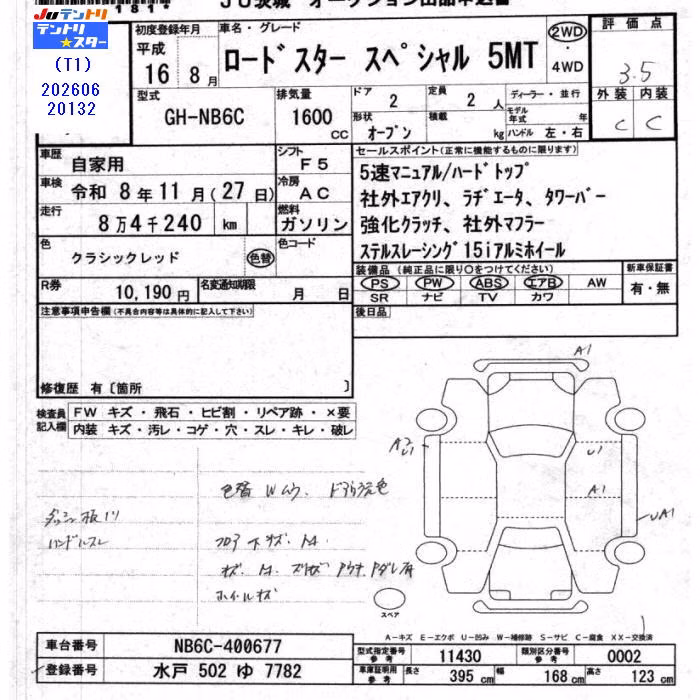 JU茨城 オークション出品申込書
1819
JUテントリ
テントリ★スター
(T1)
202606
20132
初度登録年月
平成
16年 8月
車名・グレード
ロードスター スペシャル 5MT
2WD
・
4WD
評価点
3.5
外装 内装
C C
型式
GH-NB6C
排気量
1600
CC
ドア
2
定員
2 人
ディーラー・並行
モデル年式 年
形状
オープン
積載
kg
ハンドル 左・右
車歴
自家用
シフト
F5
車検
令和 8年11月(27日)
冷房
AC
走行
8万4千240 km
燃料
ガソリン
色
クラシックレッド
色替
色コード
R券
10,190円
名変通知期限
月 日
セールスポイント(正常に機能するものに限ります)
5速マニュアル/ハードトップ
社外エアクリ、ラヂエータ、タワーバー
強化クラッチ、社外マフラー
ステルスレーシング15iアルミホイール
装備品(純正品に限り○をつけてください)
PS PW ABS エアB AW
SR ナビ TV カワ
新車保証書
有・無
後日品
注意事項申告欄(不具合内容等は具体的に記入して下さい)
修復歴 有〔箇所 〕
検査員記入欄
FW キズ・飛石・ヒビ割・リペア跡・×要
内装 キズ・汚レ・コゲ・穴・スレ・キレ・破レ
A1
U1
A1
UA1
色替 Wムラ
ハンドルスレ
ホイールキズ
スペア
A－キズ E－エクボ U－凹み W－補修跡 S－サビ C－腐食 XX－交換済
車台番号
NB6C-400677
登録番号
水戸 502 ゆ 7782
型式指定番号
参考
11430
類別区分番号
参考
0002
車庫証明用
参考
長さ 395 cm
幅 168 cm
高さ 123 cm